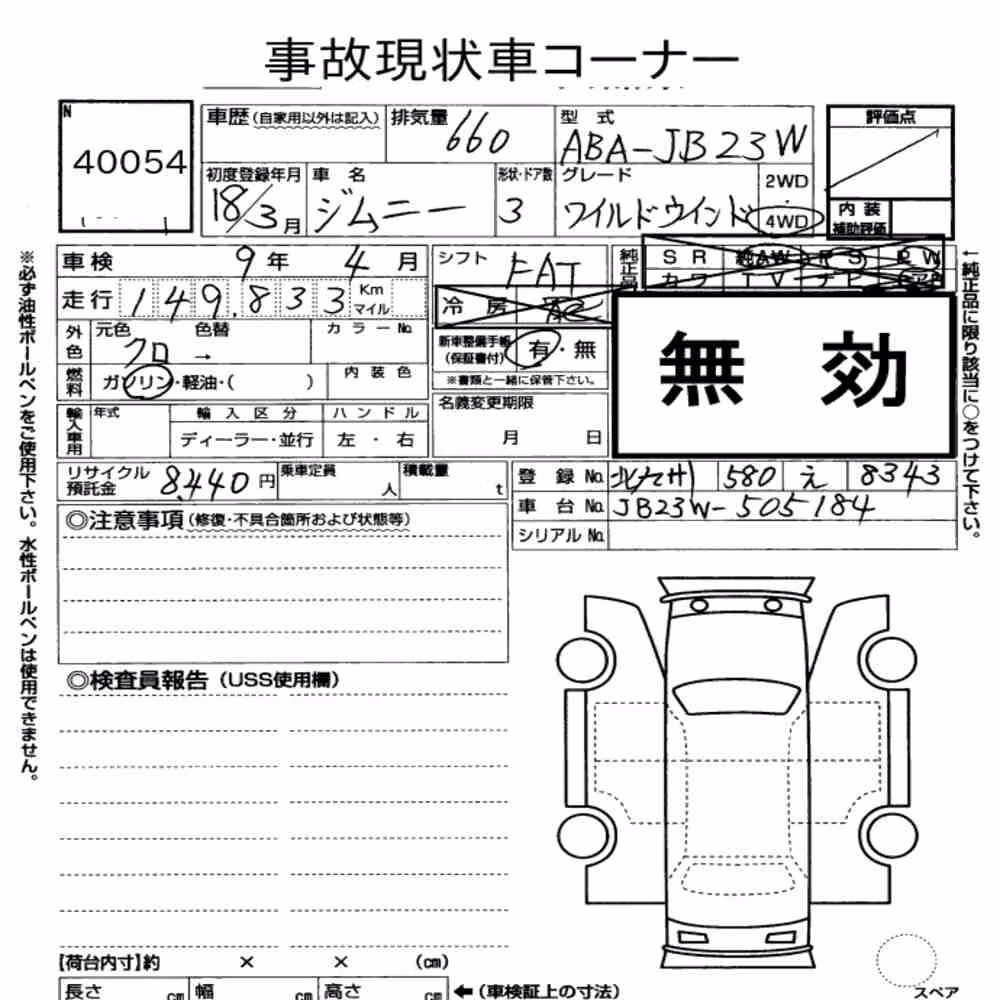 事故現状車コーナー
N
40054
車歴(自家用以外は記入)
排気量
660
型式
ABA-JB23W
評価点
初度登録年月
18/3月
車名
ジムニー
形状・ドア数
3
グレード
ワイルドウインド
2WD
・
4WD
内装
補助評価
車検 9年 4月
シフト
FAT
純正品
SR 純AW PS PW
カワ TV ナビ
走行 149,833 Km
マイル
冷房
外色
元色
クロ
→
色替
カラーNo.
新車整備手帳
(保証書付)
有・無
※書類と一緒に保管下さい。
無効
燃料
ガソリン・軽油・( )
内装色
名義変更期限
月 日
輸入車用
年式
輸入区分
ハンドル
ディーラー・並行
左・右
リサイクル
預託金
8,440円
乗車定員
人
積載量
t
登録No. 北九州 580 え 8343
車台No. JB23W-505184
シリアルNo.
◎注意事項(修復・不具合箇所および状態等)
◎検査員報告(USS使用欄)
【荷台内寸】約 × × (cm)
長さ cm 幅 cm 高さ cm ←(車検証上の寸法)
スペア
※必ず油性ボールペンをご使用下さい。水性ボールペンは使用できません。
←純正品に限り該当に○をつけて下さい。